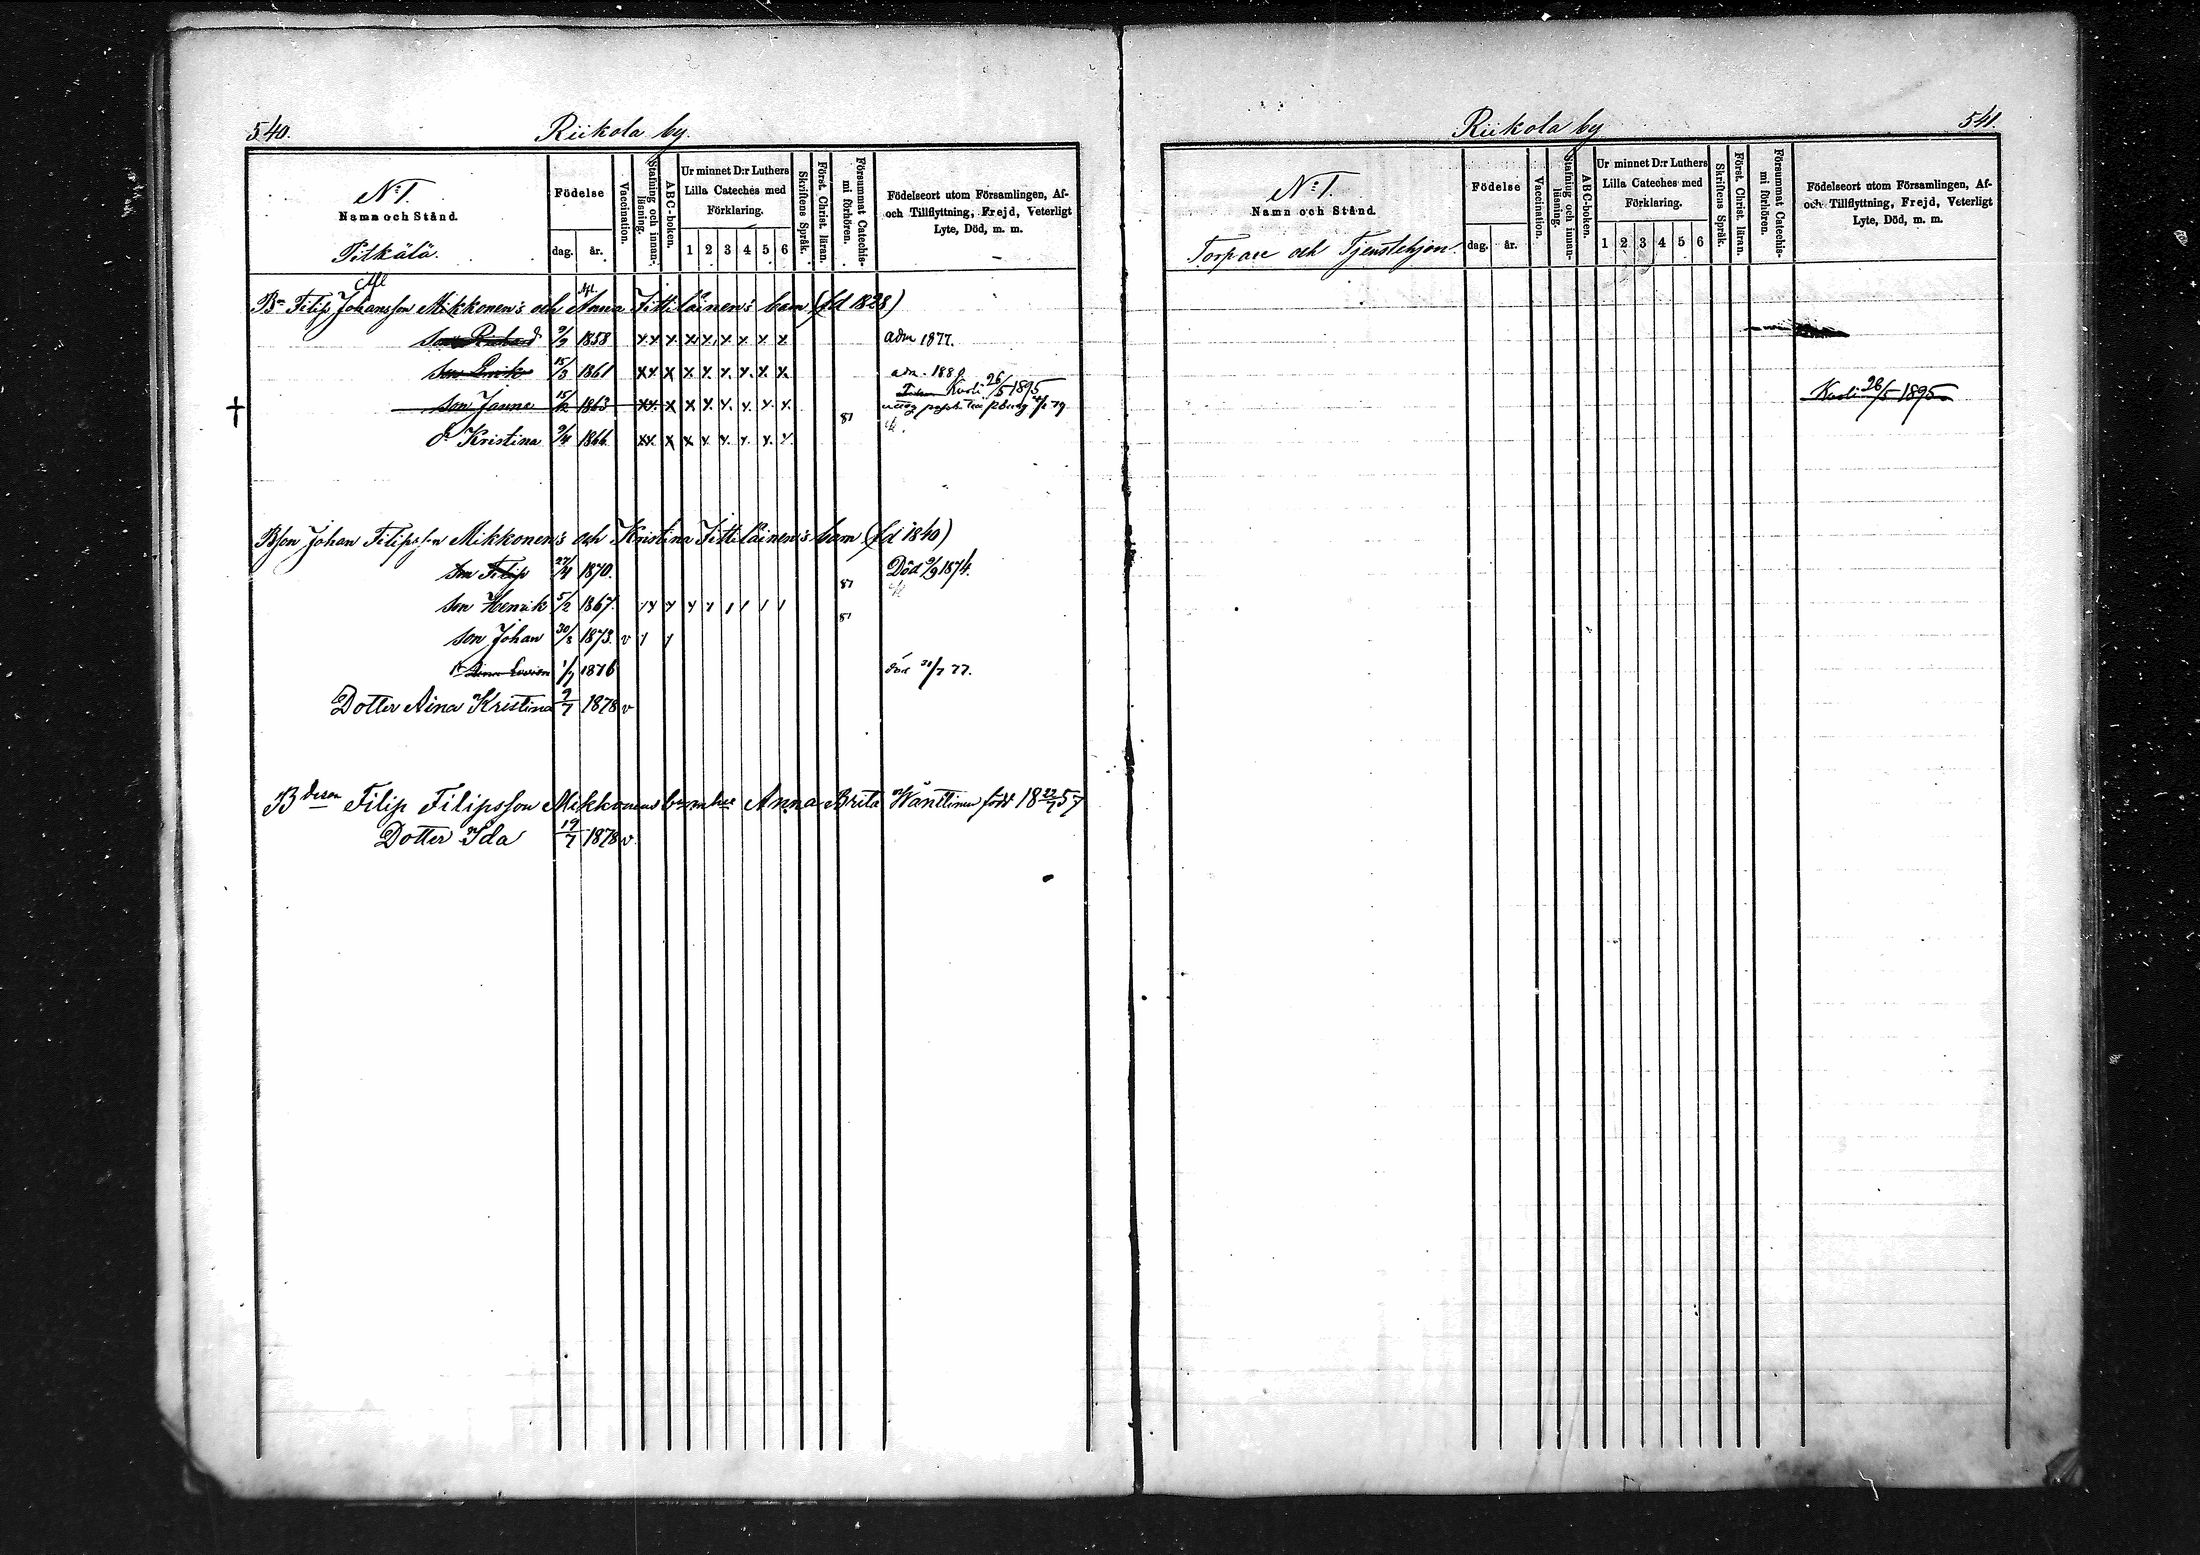 540.
Riikola by.
N:o 1.
Namn och Stånd.
Pitkälä.
Födelse
dag.
år.
Vaccination.
Stafning och innan-läsning.
ABC-boken.
Ur minnet D:r Luthers
Lilla Cateches med
Förklaring.
1 2 3 4 5 6
Skriftens Språk.
Först. Christ. läran.
Försummat Catechis-
mi förhören.
Födelseort utom Församlingen, Af-
och Tillflyttning, Frejd, Veterligt
Lyte, Död, m. m.
Bn Filip Johansson Mikkonen's och Anna Tittiläinen's barn (fd 1828)
son Richard 9/2 1858 x x x x x x x x x adm 1877.
son Erik 15/3 1861 x x x x x x x x x adm. 1880
Kuoli 26/5 1895
son Janne 15/2 1863 x x x x x x x x x
81
dr Kristina 9/4 1866 x x x x x x x x x
Bson Johan Filipsson Mikkonen's och Kristina Tittiläinen's barn (fd 1840)
son Filip 27/4 1870. Död 9/9 1874.
81
son Henrik 5/2 1867.
81
son Johan 30/8 1873. v
1/7 1876 död 21/7 77.
Dotter Aina Kristina 9/7 1878 v
Bdeson Filip Filipsson Mikkonens barn Anna Brita Wänttinen född 18 22/7 57
Dotter Ida 19/7 1878 v.
541.
Riikola by
N:o 1.
Namn och Stånd.
Torpare och Tjenstehjon.
Födelse
dag.
år.
Vaccination.
Stafning och innan-
läsning.
ABC-boken.
Ur minnet D:r Luthers
Lilla Cateches med
Förklaring.
1 2 3 4 5 6
Skriftens Språk.
Först. Christ. läran.
Försummat Catechis-
mi förhören.
Födelseort utom Församlingen, Af-
och Tillflyttning, Frejd, Veterligt
Lyte, Död, m. m.
Kuoli 26/5 1895